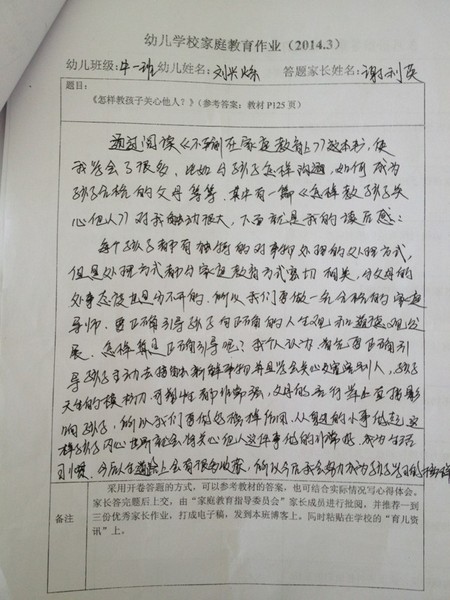 幼儿学校家庭教育作业（2014.3）
幼儿班级:中一班 幼儿姓名:刘兴烁 答题家长姓名:谢利英
题目:
《怎样教孩子关心他人？》(参考答案：教材P125页)
通过阅读《不输在家庭教育上》这本书,使
我学会了很多、比如与孩子怎样沟通,如何成为
孩子合格的父母等等.其中有一篇《怎样教孩子关
心他人》对我触动很大,下面就是我的读后感:
每个孩子都有独特的对事物处理的处理方式,
但是处理方式都与家庭教育方式密切相关,与父母的
处事态度也是分不开的.所以我们要做一名合格的家庭
导师.要正确引导孩子向正确的人生观和道德观发
展.怎样算是正确引导呢?我个人认为.首先要正确引
导孩子主动去接触新鲜事物并且学会关心别人,孩子
天生的模仿力.可塑性都非常强,父母的言行举止直接影
响孩子,所以我们要做好榜样作用.从身边的小事做起这
样孩子内心世界就会将关心他人这件事做的非常好,成为生活
习惯.今后人生道路上会有很多收获,所以今后我会努力成为孩子学习的榜样
备注
采用开卷答题的方式，可以参考教材的答案，也可结合实际情况写心得体会。
家长答完题后上交，由“家庭教育指导委员会”家长成员进行批阅，并推荐一到
三份优秀家长作业，打成电子稿，发到本班博客上。同时粘贴在学校的“育儿资
讯”上。